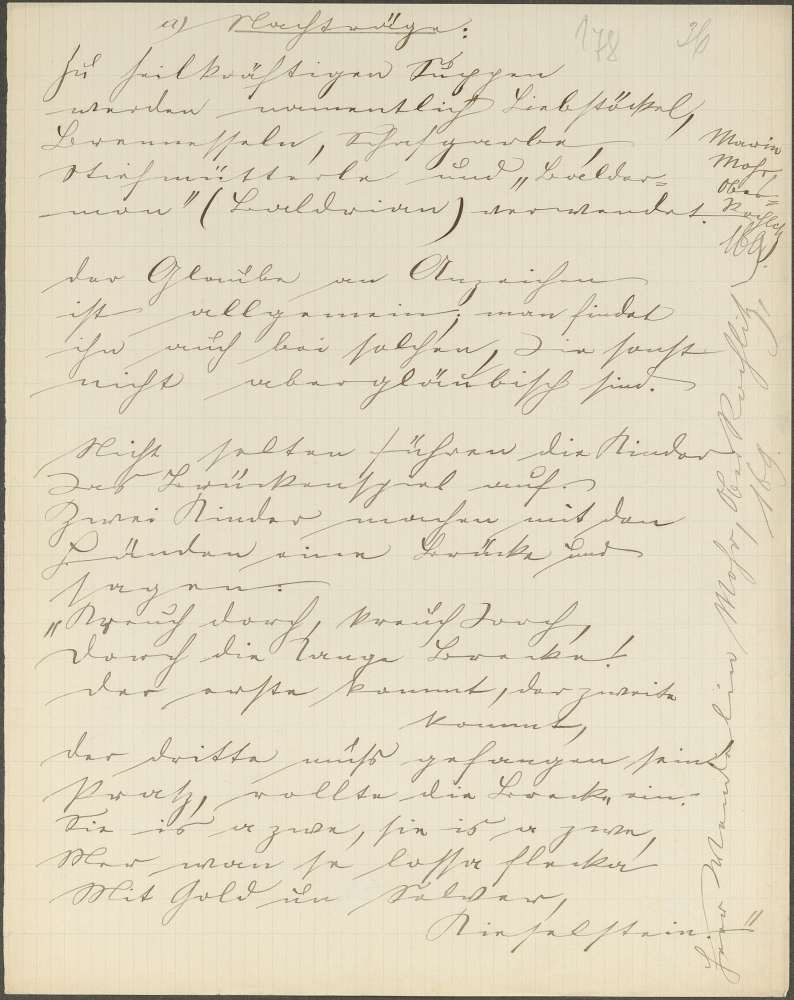 a) Nachträge:
178
36
Zu heilkräftigen Suppen
werden namentlich Liebstöckel,
Brennesseln, Schafgarbe,
Stiefmütterle und „Balder-
mon" (Baldrian) verwendet.
Marie
Mohr,
Ober-
Rochlitz
189
Der Glaube an Anzeichen
ist allgemein; man findet
ihn auch bei solchen, die sonst
nicht abergläubisch sind.
Nicht selten führen die Kinder
das Brückenspiel auf.
Zwei Kinder machen mit den
Händen eine Brücke und
sagen:
„Kreuch dorch, kreuch dorch,
Dorch die lange Brecke!
Der erste kommt, der zweite
kommt,
der dritte muß gefangen sein!
Pratz, rollte die Breck, ein.
Sie is a zwe, sie is a zwe,
Mer wan se lossa flecka
Mit Gold un Selver,
Kieselstein"
Mohr, Ober Rochlitz,
189